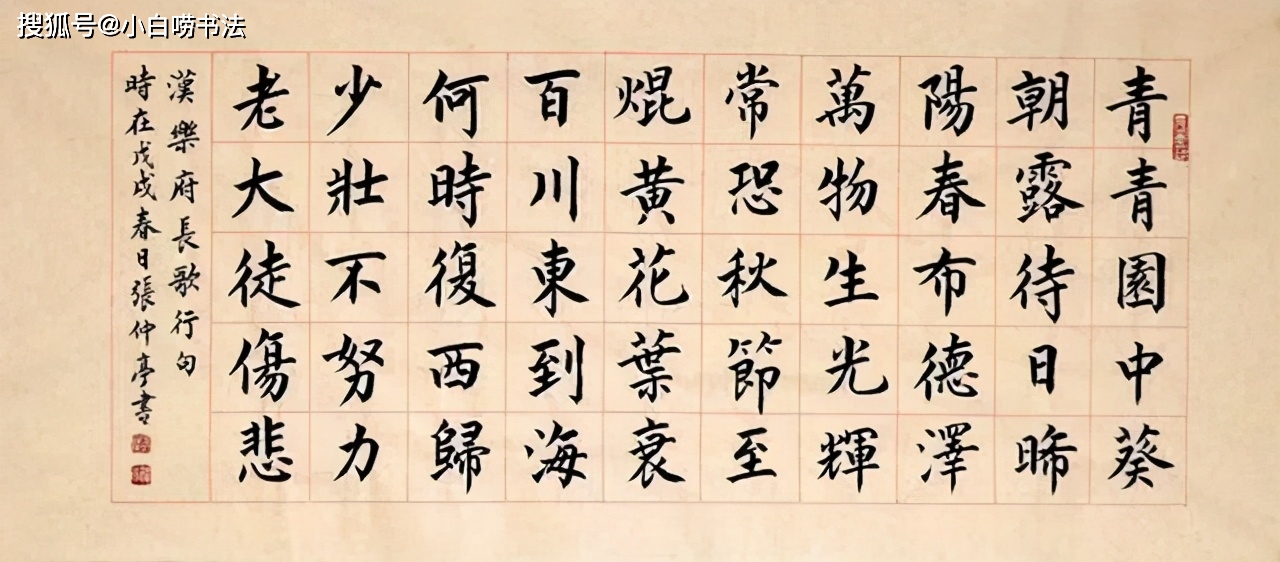 搜狐号@小白唠书法
青青園中葵
朝露待日晞
陽春布德澤
萬物生光輝
常恐秋節至
焜黃花葉衰
百川東到海
何時復西歸
少壯不努力
老大徒傷悲
漢樂府長歌行句
時在戊戌春日張仲亭書